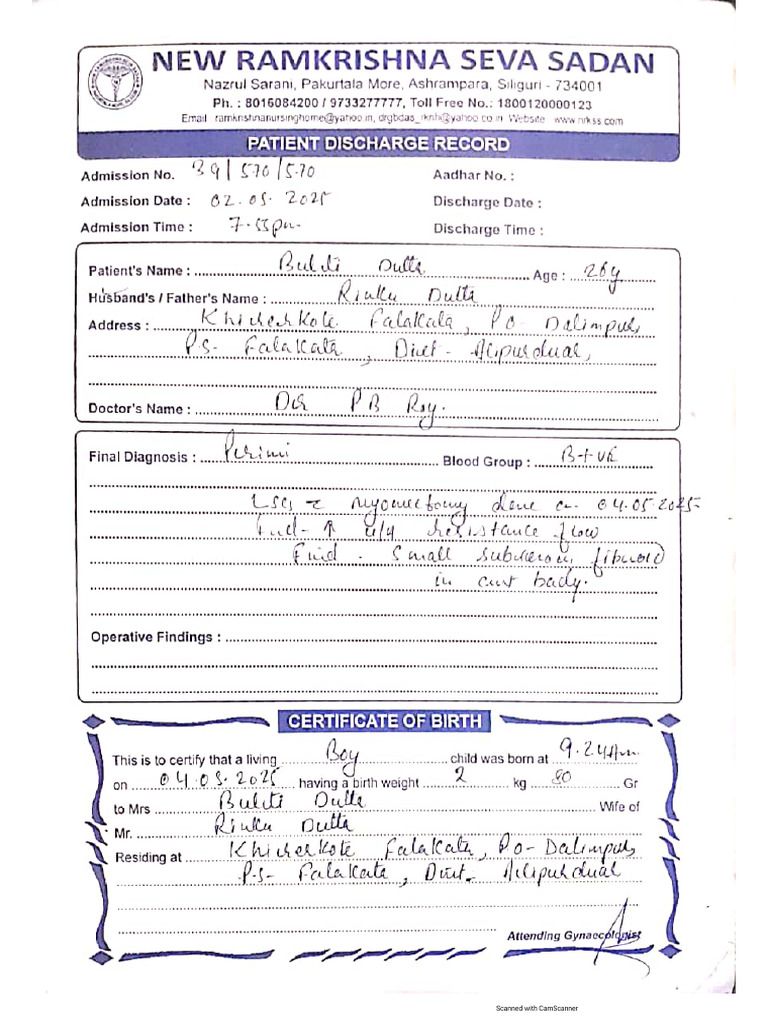 NEW RAMKRISHNA SEVA SADAN
Nazrul Sarani, Pakurtala More, Ashrampara, Siliguri - 734001
Ph. : 8016084200 / 9733277777, Toll Free No.: 1800120000123
Email ramkrishnanursinghome@yahoo.in, drgbdas_rknh@yahoo.co.in Website www.nrkss.com
PATIENT DISCHARGE RECORD
Admission No. 39/570/570 Aadhar No. :
Admission Date : 02.05.2025 Discharge Date :
Admission Time : 7.55pm. Discharge Time :
Patient's Name : Bulti Dutta Age : 26y
Husband's / Father's Name : Rinku Dutta
Address : Khicherkote Falakata, PO- Dalimpur,
P.S- Falakata, Dist- Alipurduar,
Doctor's Name : Dr P B Roy.
Final Diagnosis : Primi Blood Group : B+ve
LSCS c myomectomy done on 04.05.2025.
Ind- ↑ u/a resistance flow
Find. Small subserous fibroid
in body.
Operative Findings :
CERTIFICATE OF BIRTH
This is to certify that a living Boy child was born at 9.24Am.
on 04.05.2025 having a birth weight 2 kg 80 Gr
to Mrs Bulti Dutta Wife of
Mr. Rinku Dutta
Residing at Khicherkote Falakata, Po- Dalimpur,
P.S- Falakata, Dist. Alipurduar
Attending Gynaecologist
Scanned with CamScanner